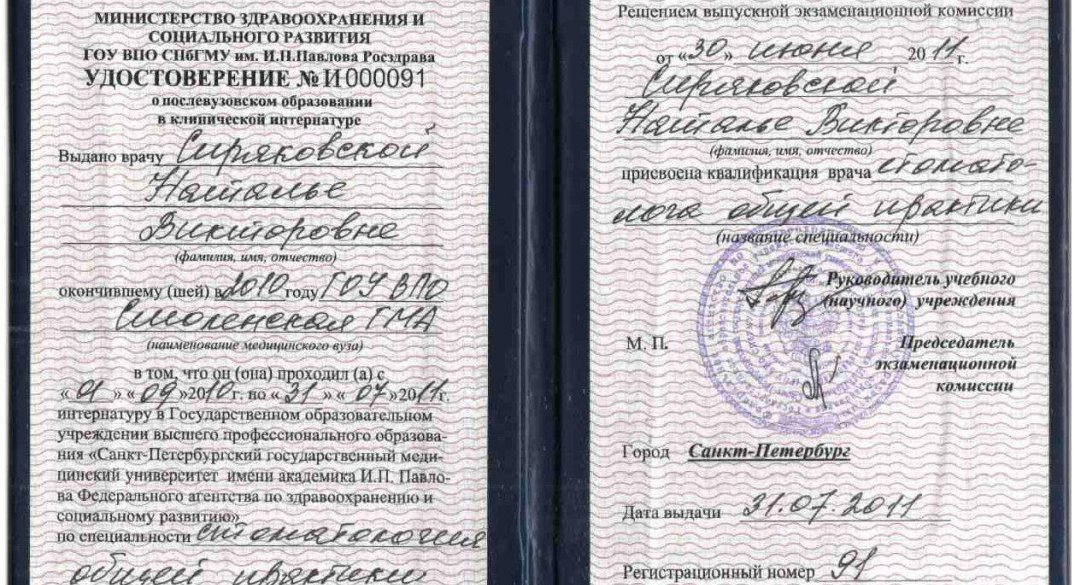 МИНИСТЕРСТВО ЗДРАВООХРАНЕНИЯ И
СОЦИАЛЬНОГО РАЗВИТИЯ
ГОУ ВПО СПбГМУ им. И.П.Павлова Росздрава
УДОСТОВЕРЕНИЕ № И 000091
о послевузовском образовании
в клинической интернатуре
Выдано врачу Сиряковской
Наталье
Викторовне
(фамилия, имя, отчество)
окончившему (шей) в 2010 году ГОУ ВПО
Смоленская ГМА
(наименование медицинского вуза)
в том, что он (она) проходил (а) с
« 01 » « 09 »2010г. по « 31 » « 07 »2011г.
интернатуру в Государственном образовательном
учреждении высшего профессионального образова-
ния «Санкт-Петербургский государственный меди-
цинский университет имени академика И.П. Павло-
ва Федерального агентства по здравоохранению и
социальному развитию»
по специальности стоматология
общей практики
Решением выпускной экзаменационной комиссии
от «30» июня 2011г.
Сиряковской
Наталье Викторовне
(фамилия, имя, отчество)
присвоена квалификация врача стомато-
лога общей практики
(название специальности)
Руководитель учебного
(научного) учреждения
М. П.
Председатель
экзаменационной
комиссии
Город Санкт-Петербург
Дата выдачи 31.07.2011
Регистрационный номер 91